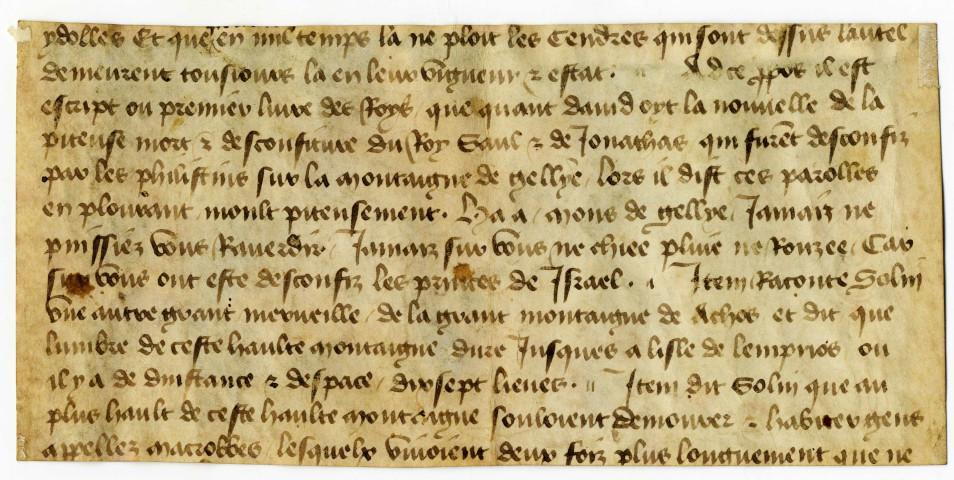 ydolles Et que en nul temps la ne ploit les Cendres qui sont dessus lautel
demeurent tousiours la en leur vigueur & estat . Ad ce ꝓpos il est
escript ou premier livre des Roys , que quant david oyt la nouvelle de la
piteuse mort & desconfiture du Roy Saul & de Jonathas qui furẽt desconfiz
par les philistins sur la montaigne de gellye / lors il dist ces parolles
en plourant moult piteusement . Ha a / mons de gellye / Jamaiz ne
puissiez vous Raverdir / Jamaiz sur vous ne chiee pluie ne Rouzee / Car
sur vous ont este desconfiz les princes de Israel . Item Raconte Solin
vne autre grant merveille / de la grant montaigne de Achos et dit que
lumbre de ceste haulte montaigne dure Jusques a lisle de lempnos ou
il y a de distance & despace / dixsept lieues . " Item dit Solin que au
plus hault de ceste haulte montaigne souloient demourer & habiter gens
appellez macrobes / lesquelx vivoient deux foiz plus longuement que ne